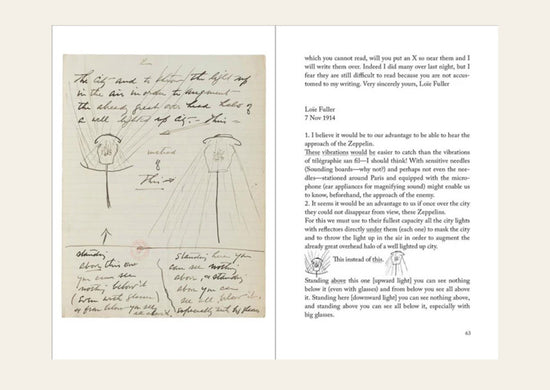 The city and to throw the light up
in the air in order to augment
the already great over head halo of
a well lighted up city. - This -
instead
of
This
Standing
above this one
you can see
nothing below it
(even with glasses)
& from below you see
all above it
Standing here you
can see nothing
above & standing
above you can
see all below it,
especially with big glasses
which you cannot read, will you put an X so near them and I
will write them over. Indeed I did many over last night, but I
fear they are still difficult to read because you are not accus-
tomed to my writing. Very sincerely yours, Loïe Fuller
Loïe Fuller
7 Nov 1914
1. I believe it would be to our advantage to be able to hear the
approach of the Zeppelin.
These vibrations would be easier to catch than the vibrations
of télégraphie san fil—I should think! With sensitive needles
(Sounding boards—why not?) and perhaps not even the nee-
dles—stationed around Paris and equipped with the micro-
phone (ear appliances for magnifying sound) might enable us
to know, beforehand, the approach of the enemy.
2. It seems it would be an advantage to us if once over the city
they could not disappear from view, these Zeppelins.
For this we must use to their fullest capacity all the city lights
with reflectors directly under them (each one) to mask the city
and to throw the light up in the air in order to augment the
already great overhead halo of a well lighted up city.
This instead of this.
Standing above this one [upward light] you can see nothing
below it (even with glasses) and from below you see all above
it. Standing here [downward light] you can see nothing above,
and standing above you can see all below it, especially with
big glasses.
63